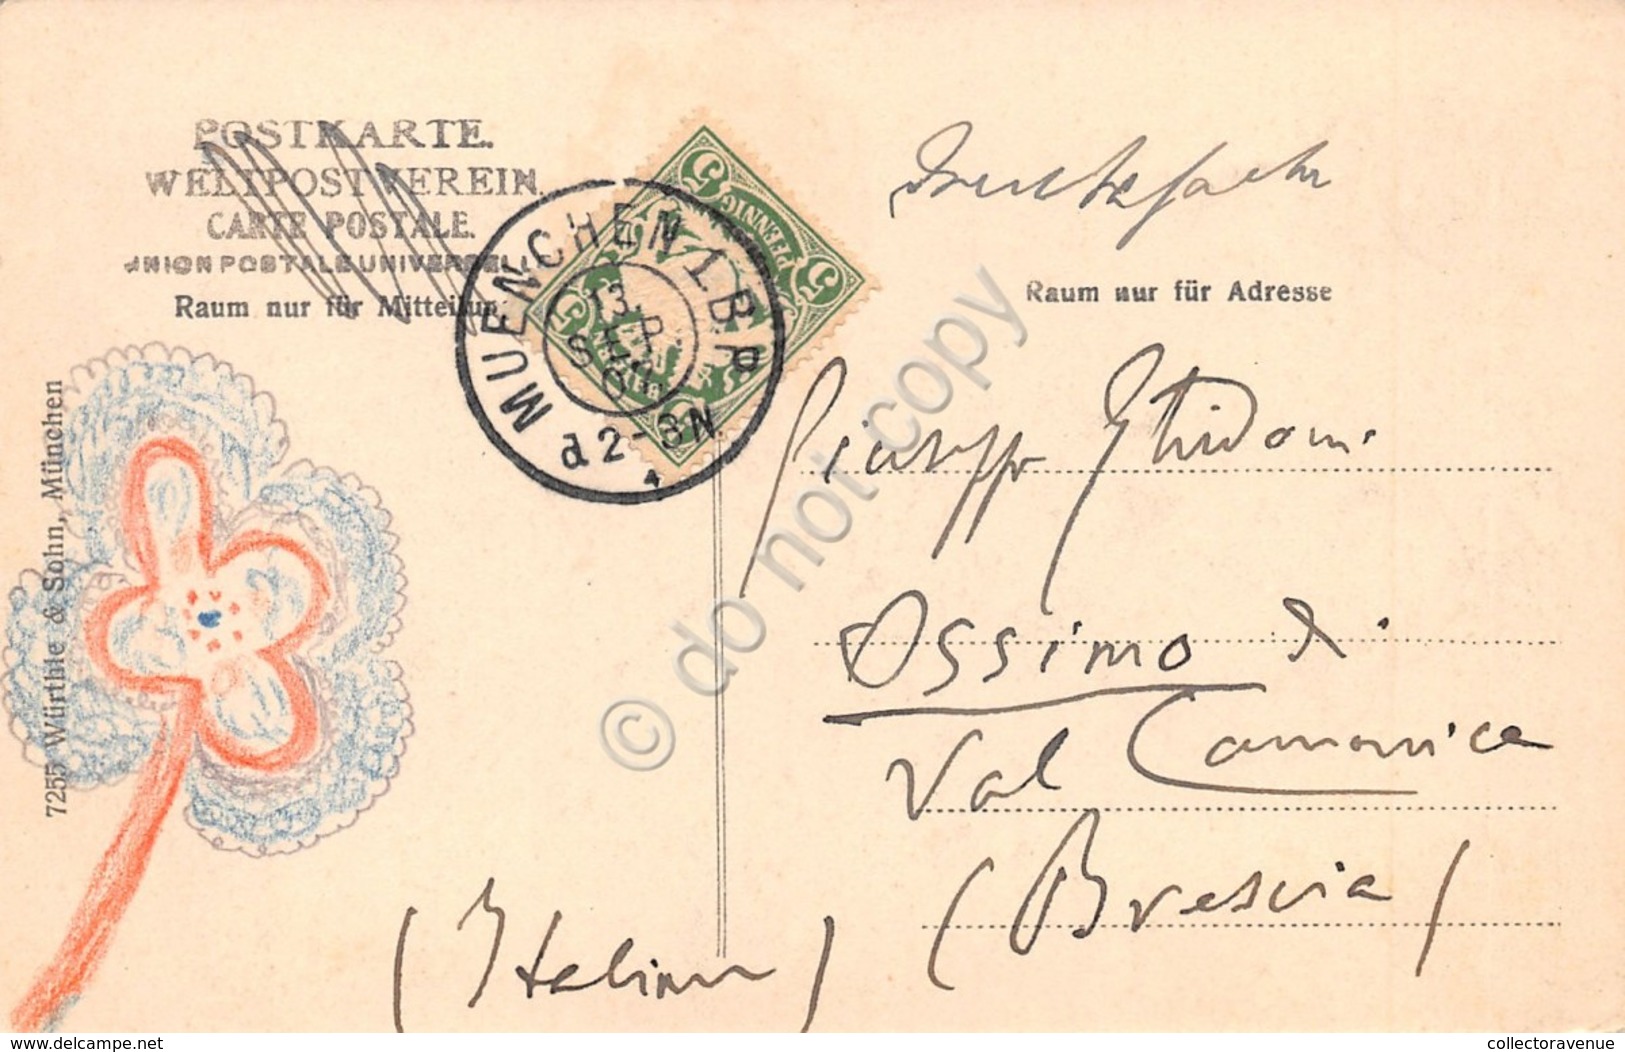 POSTKARTE.
WELTPOSTVEREIN.
CARTE POSTALE.
UNION POSTALE UNIVERSELLE
Raum nur für Mitteilung
7255 Würthle & Sohn, München
MUENCHEN 1 B.P.
13.
SEP.
d. 2-3N
5
PFENNIG
5
Drucksache
Raum nur für Adresse
Giuseppe Ghidoni
Ossimo di
Val Camonica
(Brescia)
(Italien)
© do not copy
delcampe.net
collectoravenue